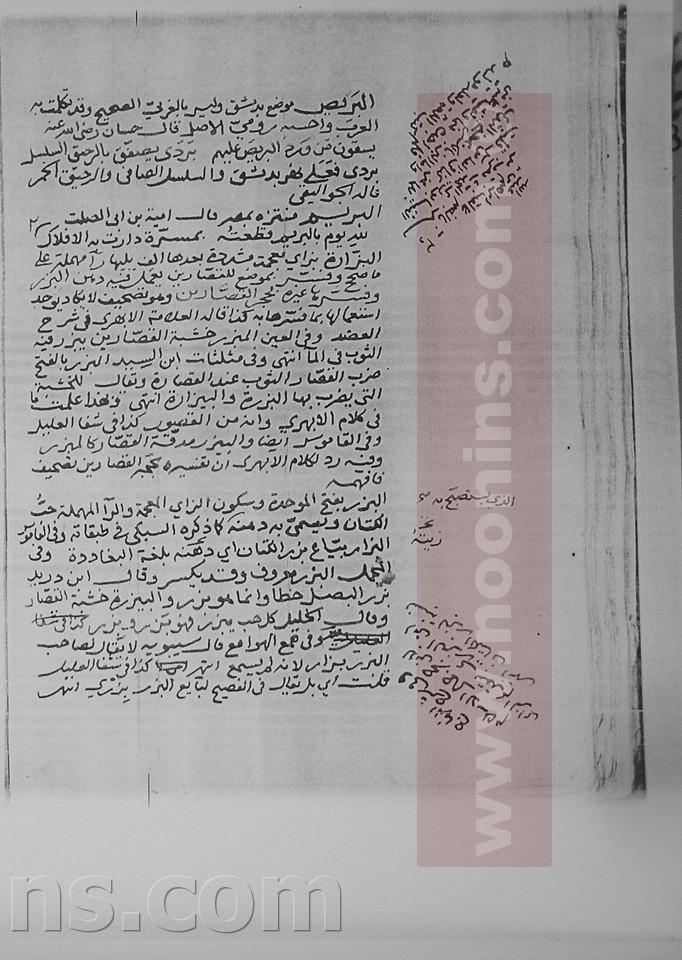 البريص موضع بدمشق وليس بالعربي الصحيح وقد تكلمت به
العرب واحسبه رومي الاصل قال حسان رضي الله عنه
يسقون من ورد البريص عليهم بردى يصفق بالرحيق السلسل
بردى فعلى نهر بدمشق والسلسل الصافي والرحيق الخمر
قاله الجواليقي
البريم منتزه بمصر قال امية بن ابي الصلت
لله يوم بالبريم قطعته بمسرة دارت به الافلاك
البزارة بزاي معجمة مشددة بعدها الف يليها رآ مهملة على
ما صحح وفسر بموضع للقصارين يجعل فيه دهن البزر
وفسرها غيره بحجر القصارين وهو تصحيف لا يكاد يوجد
استعمالها بما فسرها به كذا قاله العلامة الابهري في شرح
العضد وفي العين المبزر خشبة القصارين يبزر فيه
الثوب في المآ انتهى وفي مثلثات ابن السيد البزر بالفتح
ضرب القصار الثوب عند القصارة ويقال للخشبة
التي يضرب بها البزرة والبيزارة انتهى وبهذا علمت ما
في كلام الابهري وانه من القصور كذا في شفا العليل
وفي القاموس ايضا والبيزر مدقة القصار كالمبزر
وفيه رد لكلام الابهري ان تفسيره بحجر القصارين تصحيف
فافهمه
البزر بفتح الموحدة وسكون الزاي المعجمة والرآ المهملة حب
الكتان ويسمى به دهنه كما ذكره السبكي في طبقاته وفي القاموس
البزار بياع بزر الكتان اي دهنه بلغة البغاددة وفي
المجمل البزر معروف وقد يكسر وقال ابن دريد
بزر البصل خطأ وانما هو بذر والبيزرة خشبة القصار
وقال الخليل كل حب يبذر فهو بزر وبذر كذا في شفا
العليل وفي همع الهوامع قال سيبويه لا يقال لصاحب
البزر بزار لانه لم يسمع انتهى كذا في شفا العليل
قلت اي بل يقال في الفصيح لبايع البزر بزري انتهى
الذي يستصبح به
زيته
www.noonins.com
ns.com